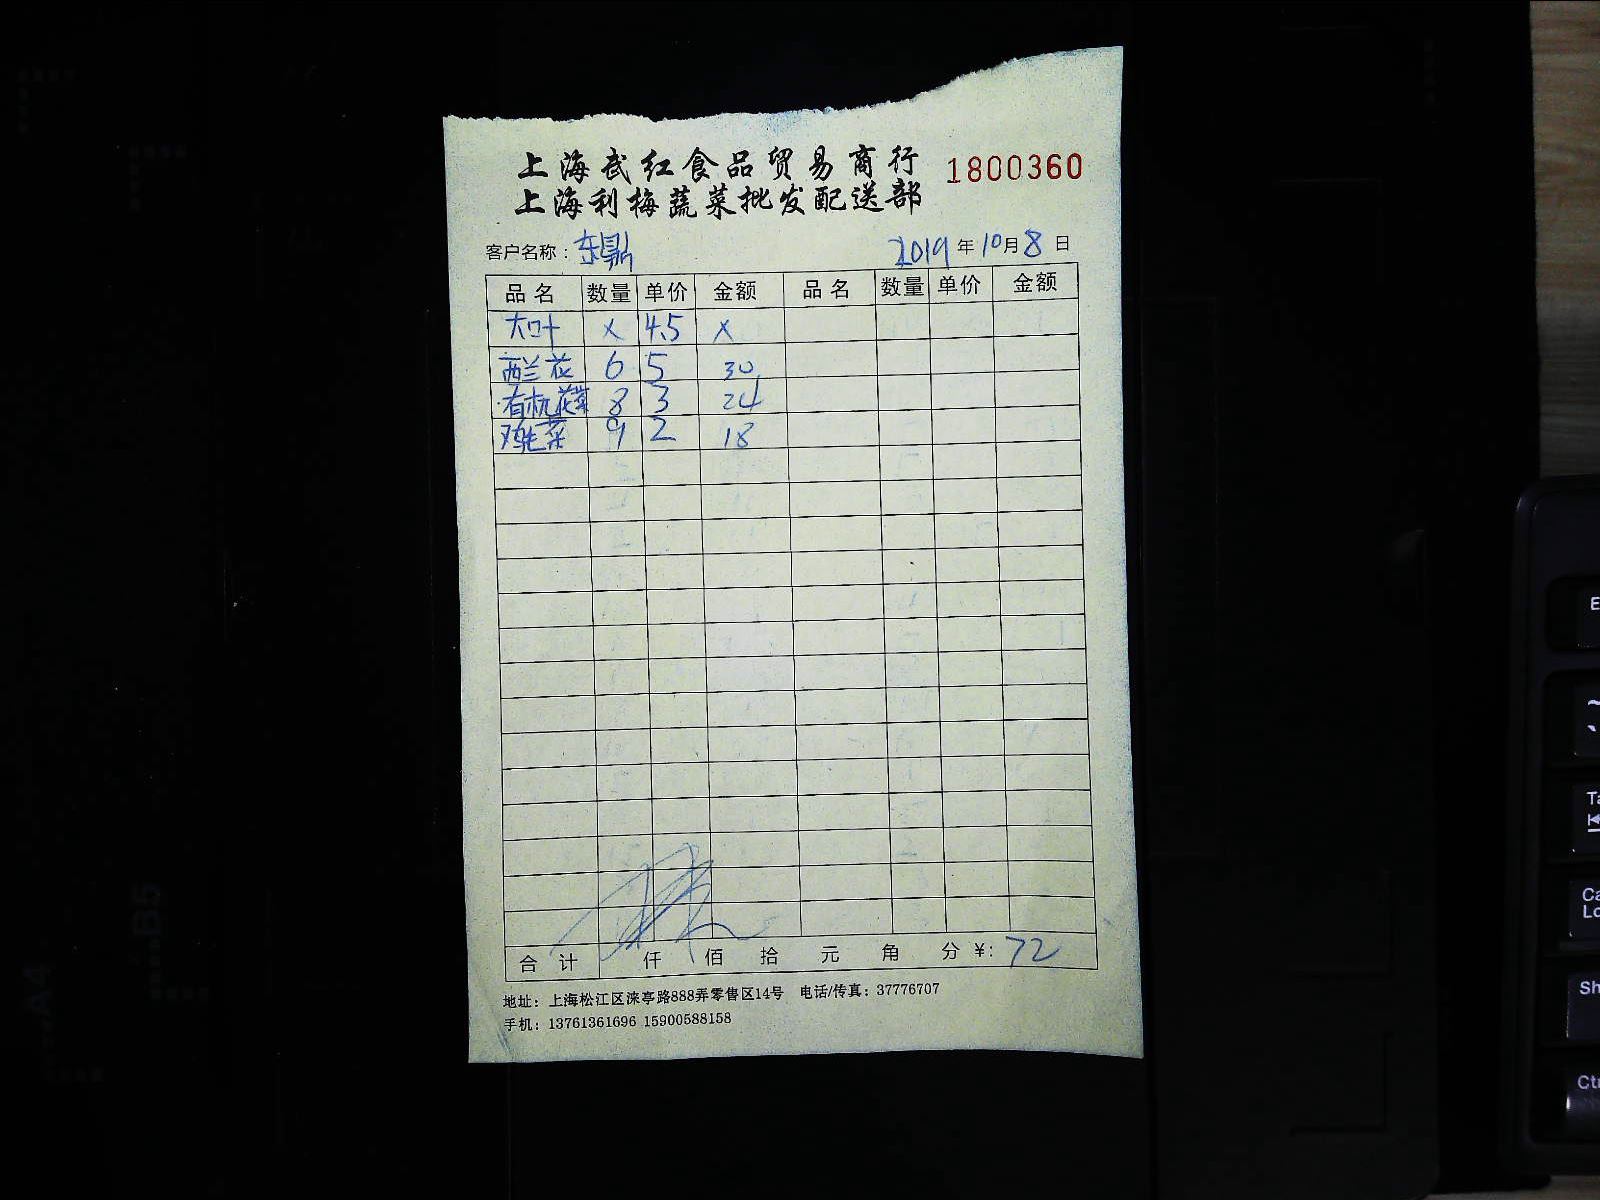 上海武红食品贸易商行 1800360
上海利梅蔬菜批发配送部
客户名称：东鼎 2019年10月8日
品名 数量 单价 金额 品名 数量 单价 金额
大叶 × 4.5 ×
西兰花 6 5 30
有机花菜 8 3 24
鸡毛菜 9 2 18
合计 仟 佰 拾 元 角 分 ¥: 72
地址：上海松江区涞亭路888弄零售区14号 电话/传真：37776707
手机：13761361696 15900588158
B5
A4